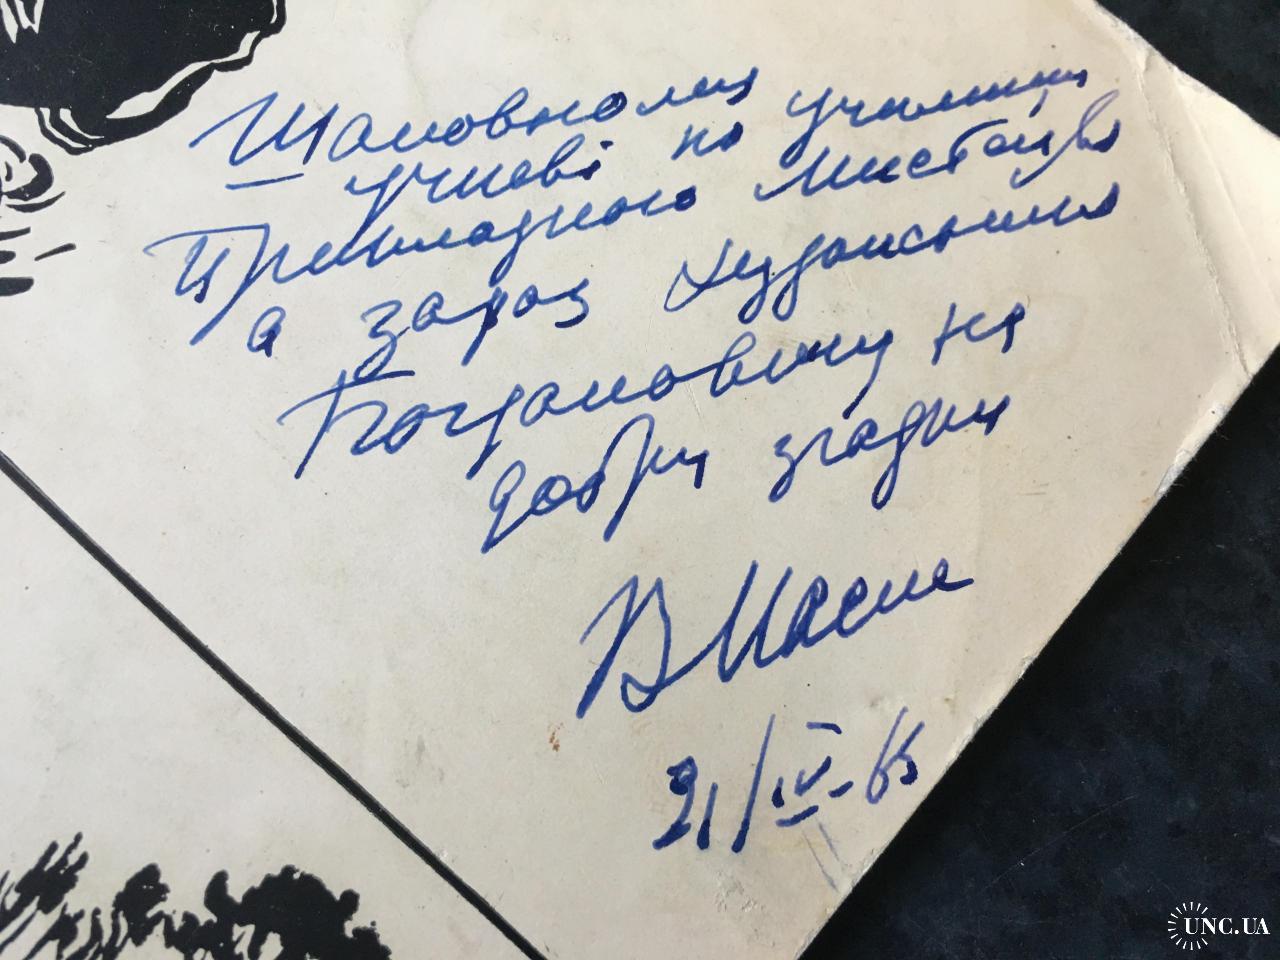 Шановному
учневі по училищу
Прикладного мистецтва
а зараз художнико
Богдановичу на
добру згадку
В Масик
21/IV-65
UNC.UA